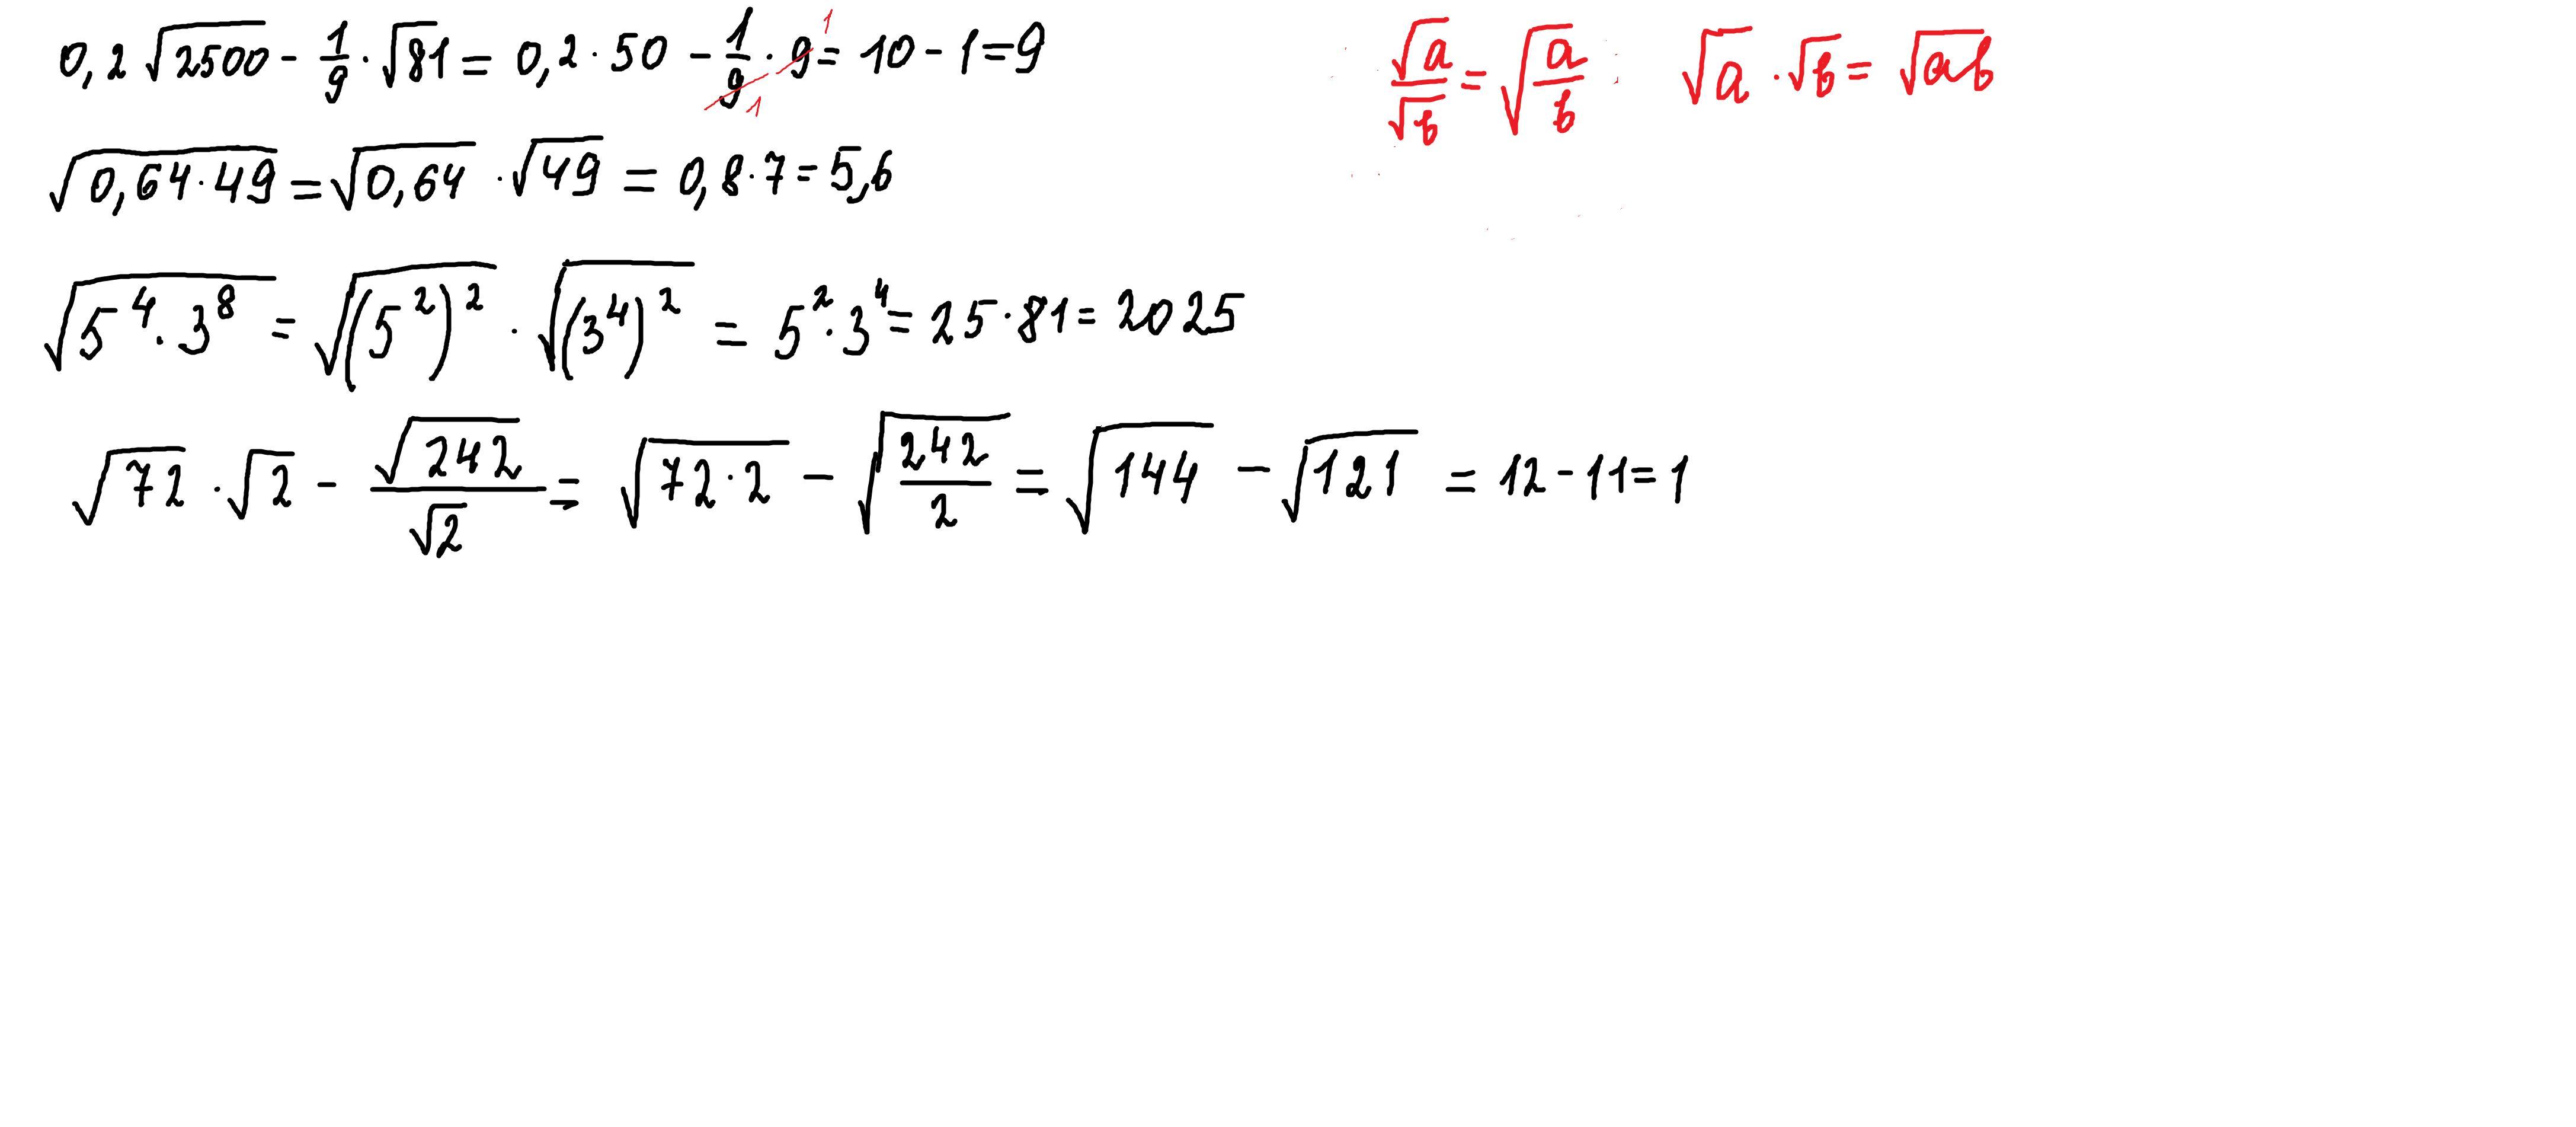 0,2 √2500 - 1/9 · √81 = 0,2 · 50 - 1/9 · 9 = 10 - 1 = 9
1
1
√a/√b = √(a/b) ; √a · √b = √ab
√(0,64 · 49) = √0,64 · √49 = 0,8 · 7 = 5,6
√(5⁴ · 3⁸) = √(5²)² · √(3⁴)² = 5² · 3⁴ = 25 · 81 = 2025
√72 · √2 - √242/√2 = √(72 · 2) - √(242/2) = √144 - √121 = 12 - 11 = 1